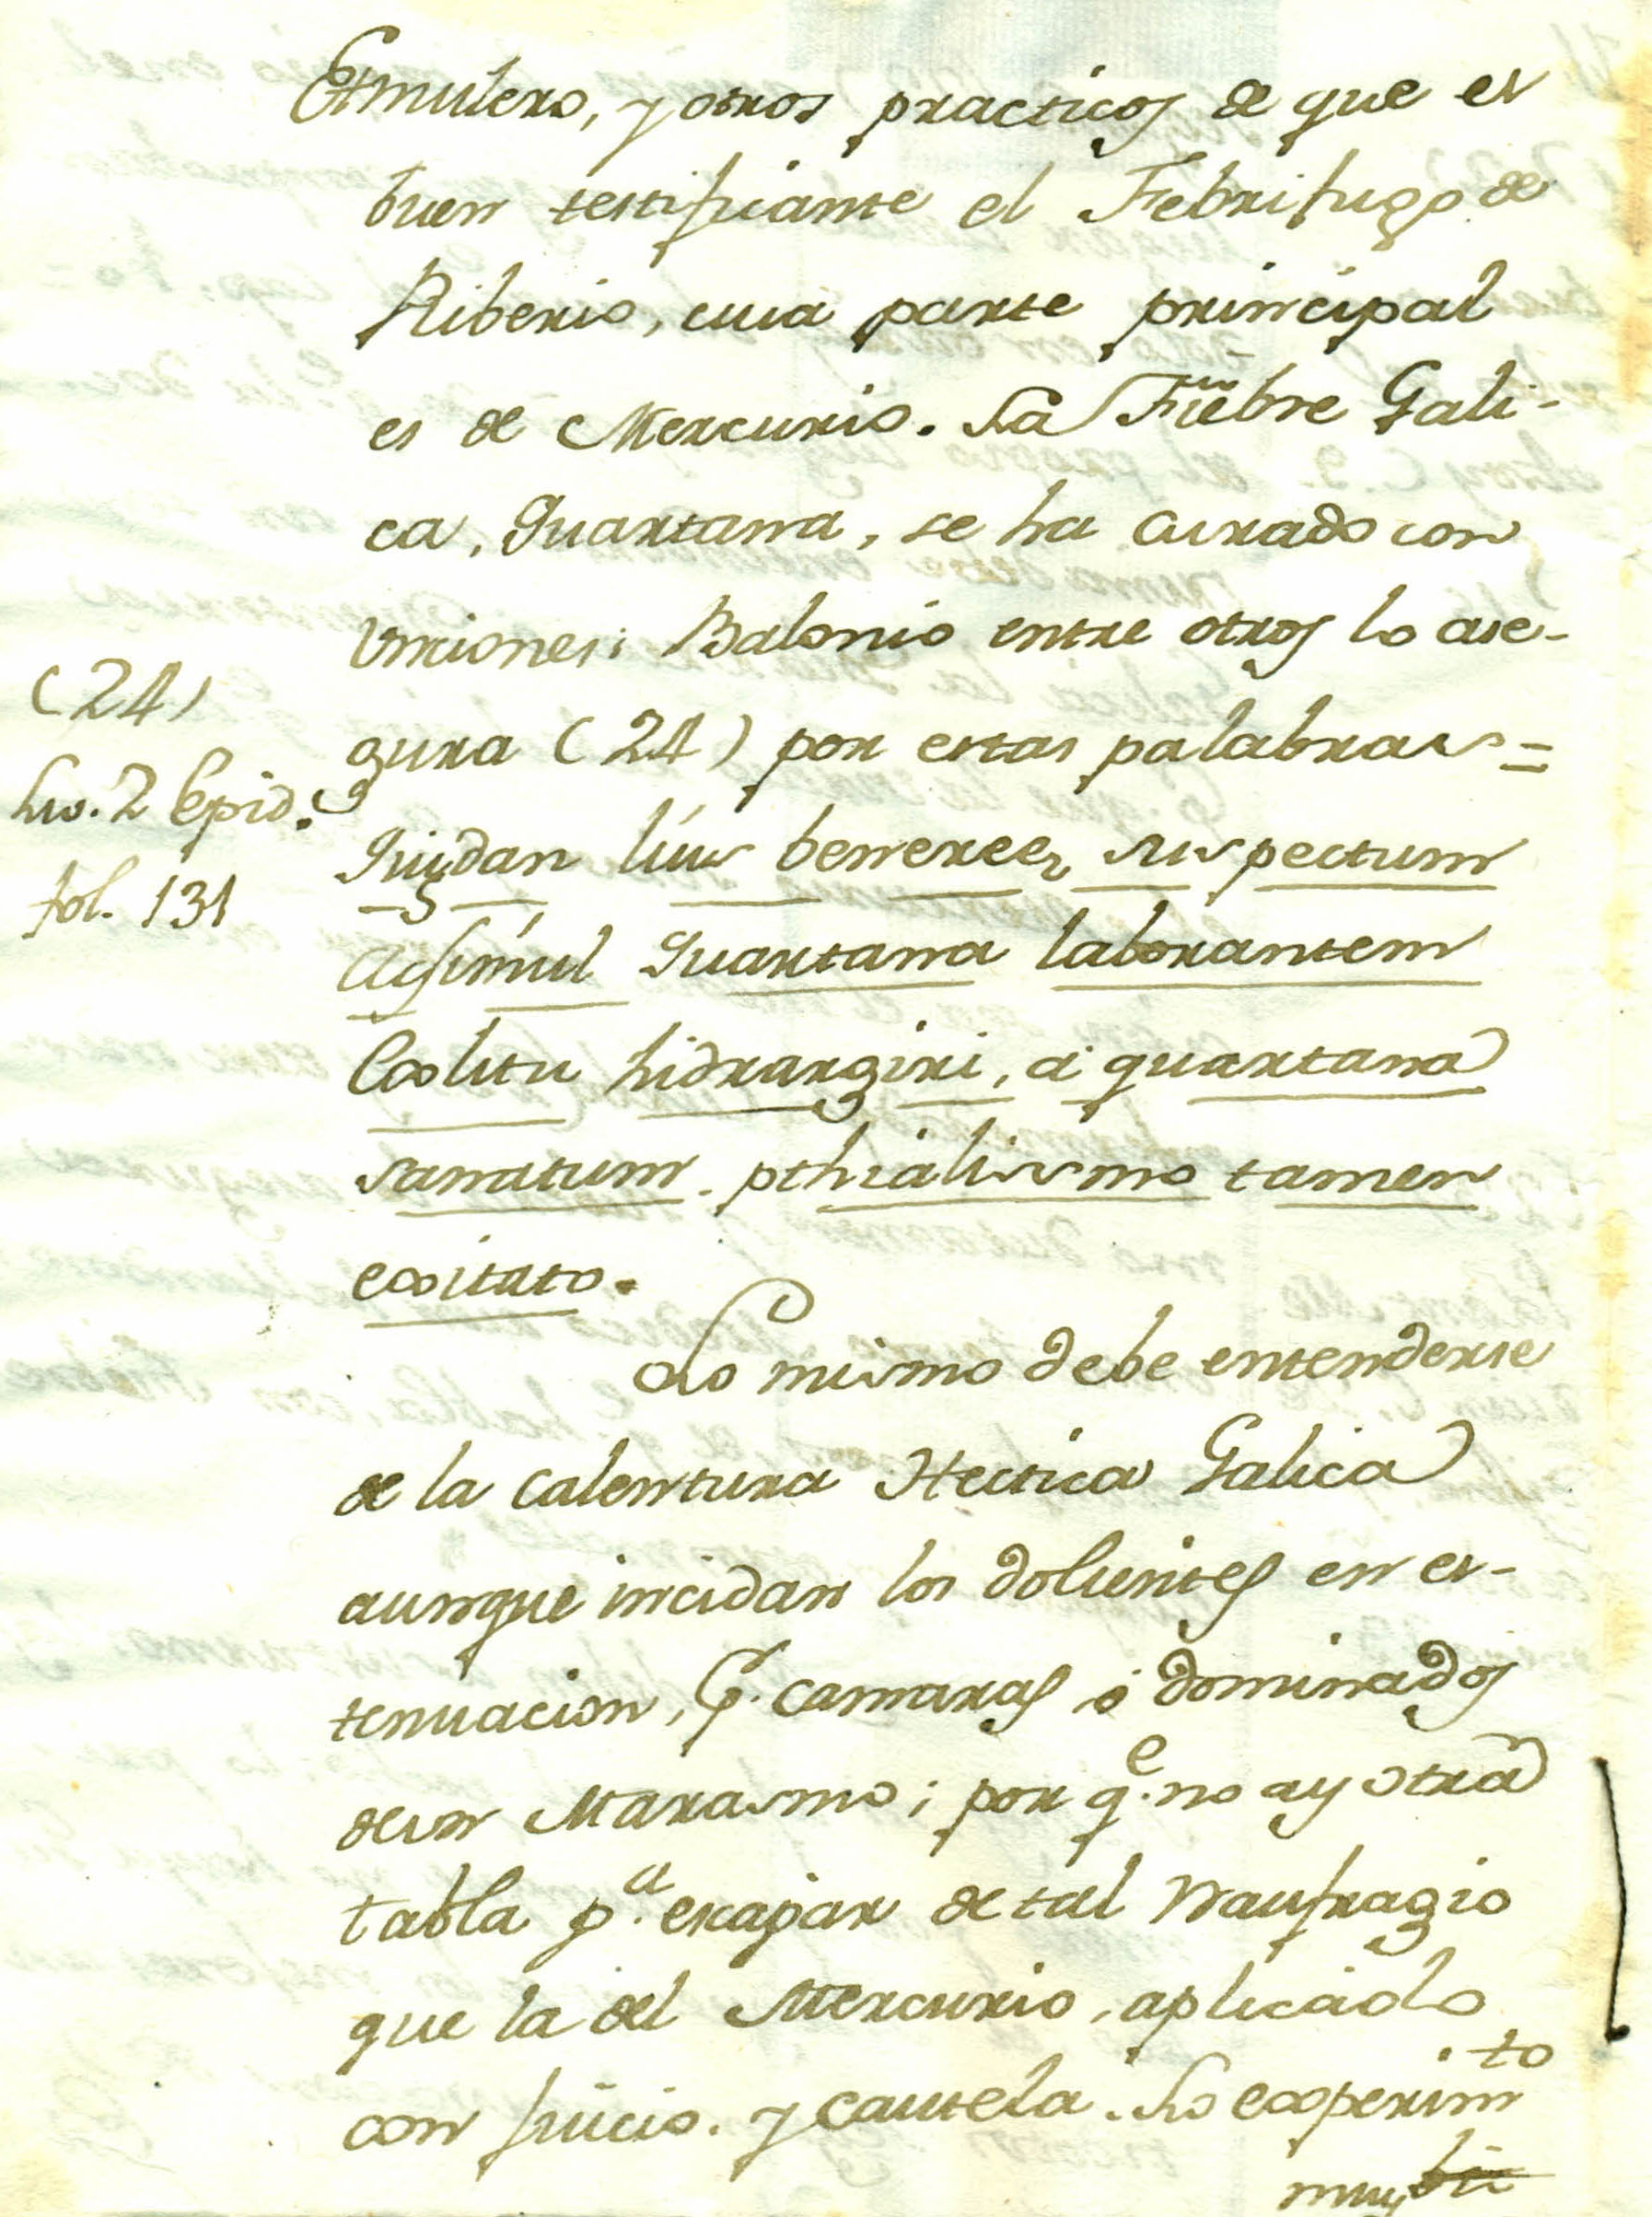 Etmulero, y otros practicos de que es
buen testificante el Febrifugo de
Riberio, cuia parte principal
es de Mercurio. La Fiebre Gali-
ca, Quartana, se ha curado con
Unciones; Balonio entre otros lo ase-
gura (24) por estas palabras =
(24)
Liv. 2 Epid.
fol. 131
Quidan lúis benereer suspectum
ac simul Quartana laborantem
Exlitu hidrargiri, á quartana
sanatum. pthialismo tamen
exsitato.
Lo mismo debe entenderse
de la Calentura Hectica Galica
aunque incidan los dolientes en es-
tenuacion, Camaras ó dominados
de un Marasmo; por q.e no ay otra
tabla p.a escapar de tal Naufragio
que la del Mercurio, aplicado
con juicio. y Cautela. Lo experim.to
muy